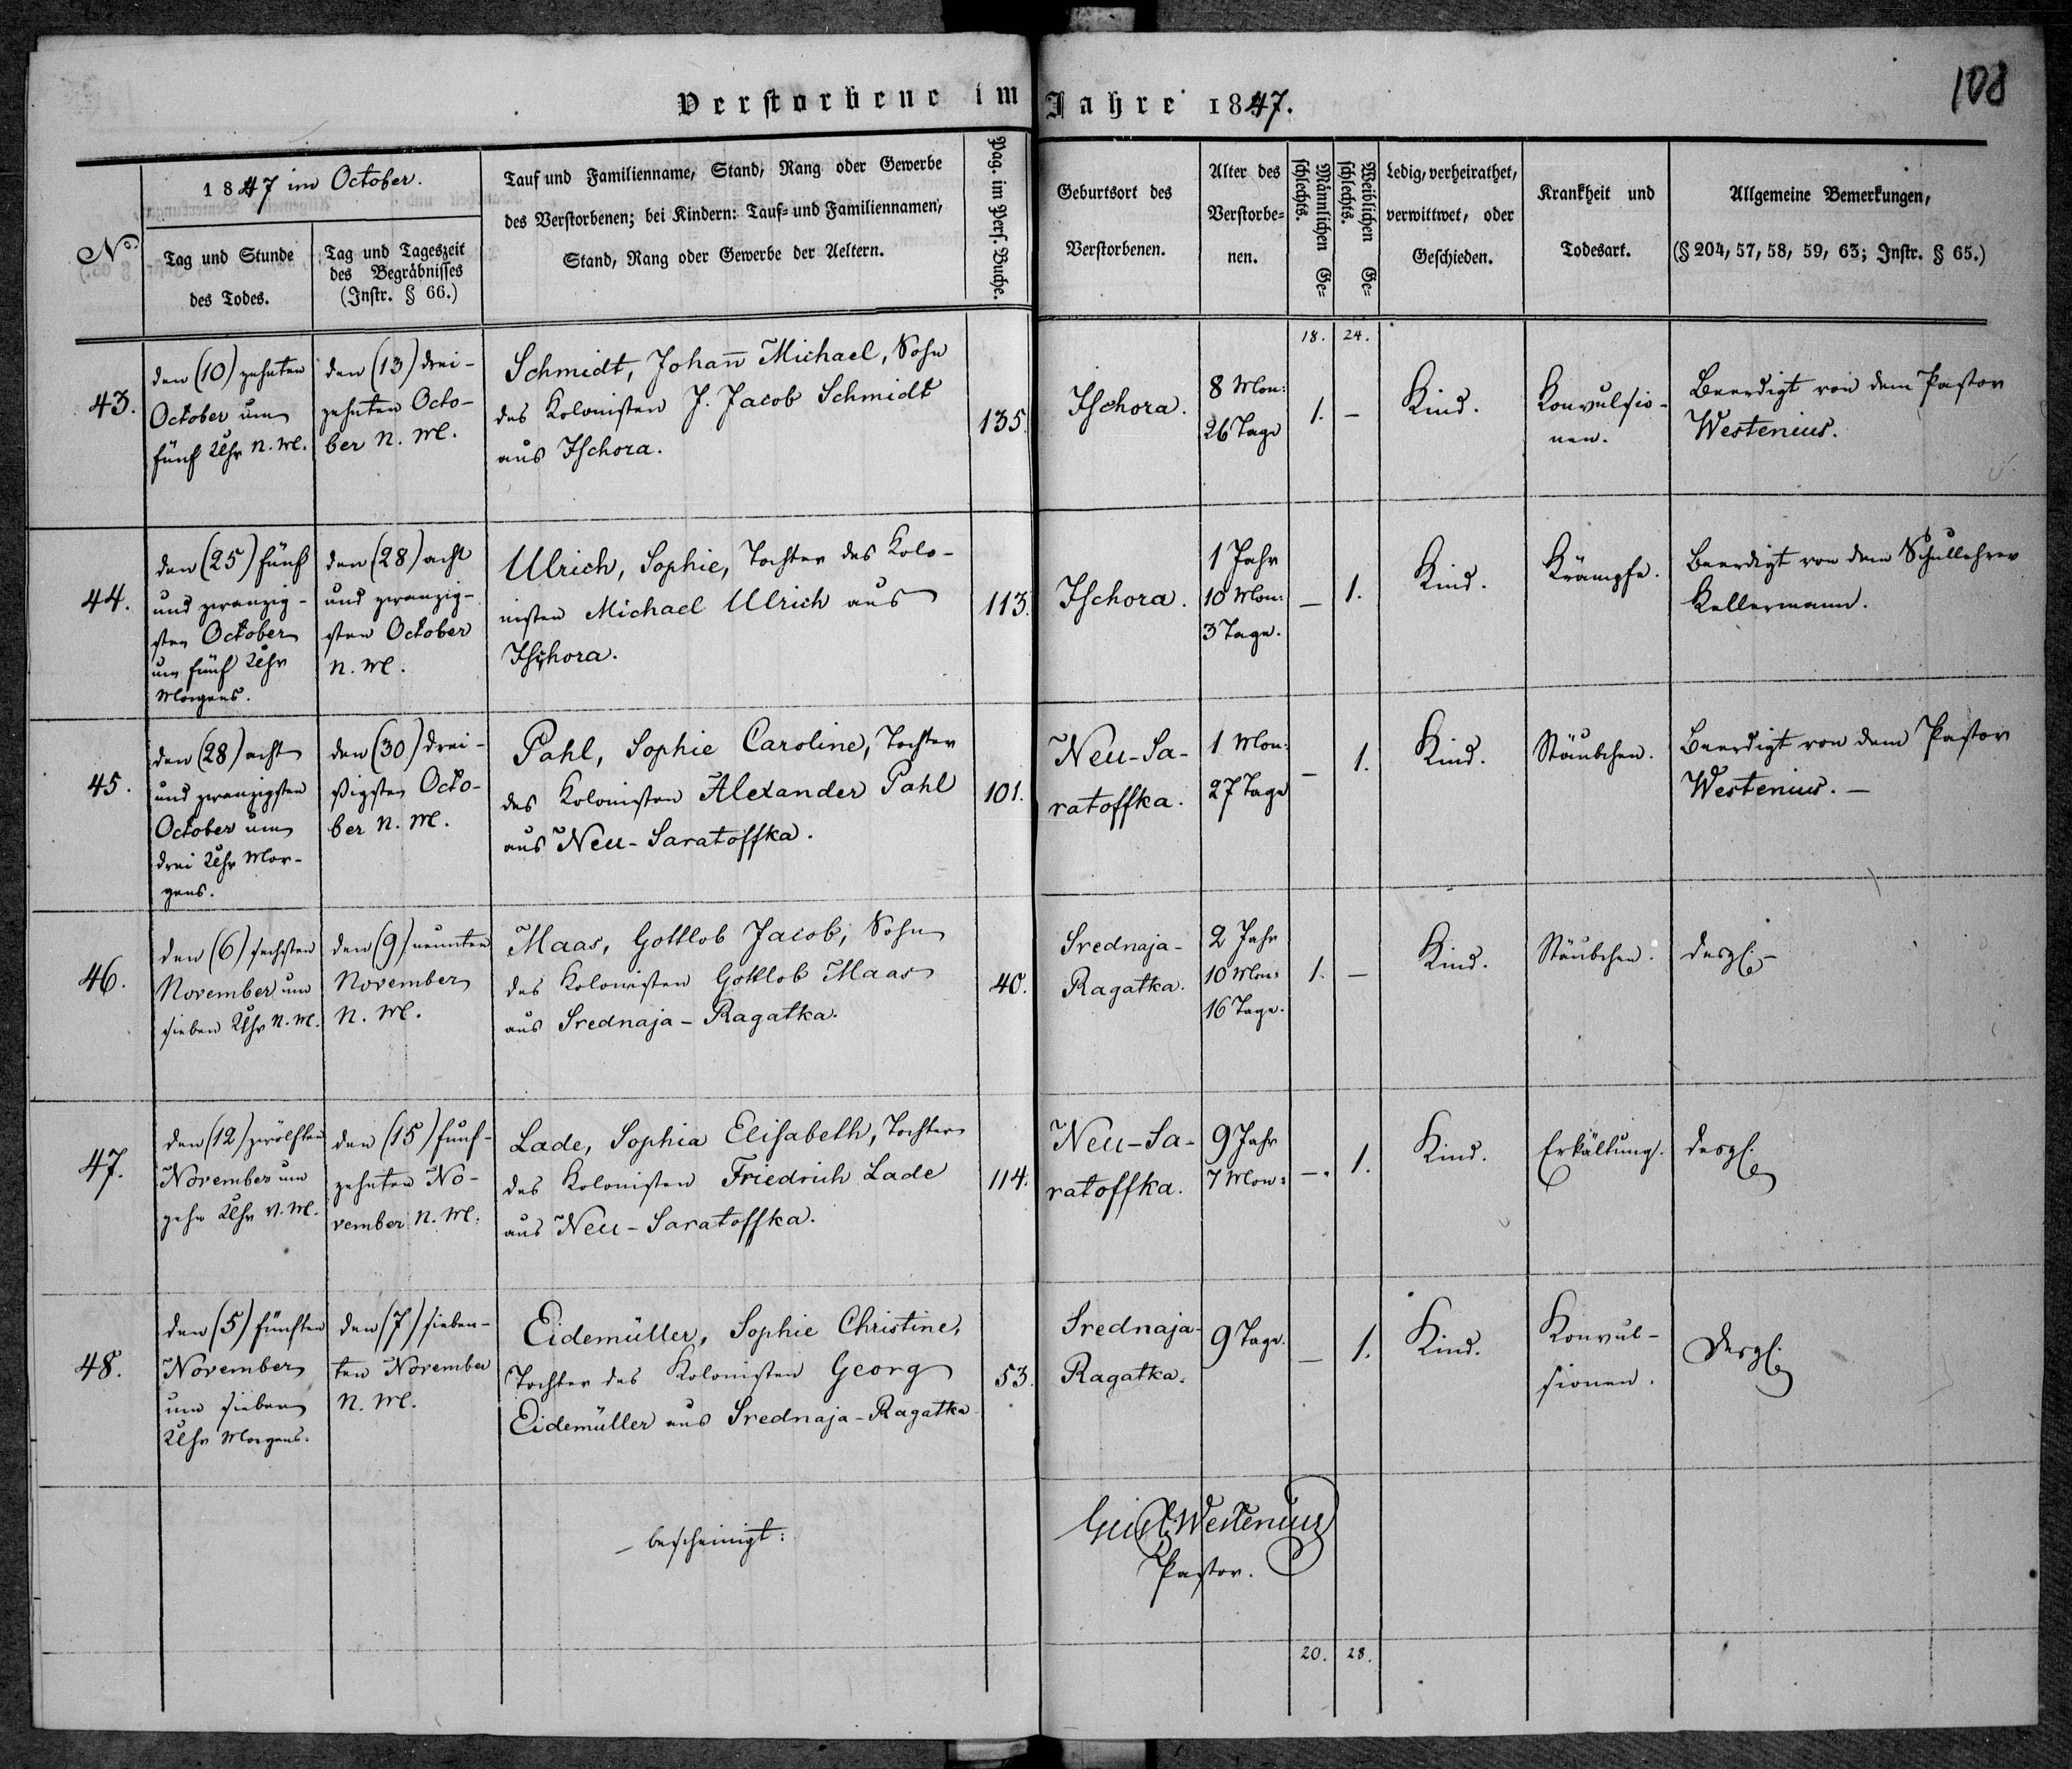 108
Verstorbene im Jahre 1847.
No.
1847 im October.
Tag und Stunde
des Todes.
Tag und Tageszeit
des Begräbnisses
(Instr. § 66.)
Tauf und Familienname, Stand, Rang oder Gewerbe
des Verstorbenen; bei Kindern: Tauf- und Familiennamen,
Stand, Rang oder Gewerbe der Aeltern.
Pag. im Pers. Buche.
Geburtsort des
Verstorbenen.
Alter des
Verstorbe=
nen.
Männlichen Ge=
schlechts.
Weiblichen Ge=
schlechts.
Ledig, verheirathet,
verwittwet, oder
Geschieden.
Krankheit und
Todesart.
Allgemeine Bemerkungen,
(§ 204, 57, 58, 59, 63; Instr. § 65.)
18. 24.
43.
den (10) zehnten
October um
fünf Uhr N. M.
den (13) drei-
zehnten Octo-
ber N. M.
Schmidt, Johan̄ Michael, Sohn
des Kolonisten J. Jacob Schmidt
aus Ischora.
135.
Ischora.
8 Mon:
26 Tage
1.
–
Kind.
Konvulsio-
nen.
Beerdigt von dem Pastor
Westenius.
44.
den (25) fünf
und zwanzig-
sten October
um fünf Uhr
Morgens.
den (28) acht
und zwanzig-
sten October
N. M.
Ulrich, Sophie, Tochter des Kolo-
nisten Michael Ulrich aus
Ischora.
113.
Ischora.
1 Jahr
10 Mon:
3 Tage.
–
1.
Kind.
Krämpfe.
Beerdigt von dem Schullehrer
Kellermann.
45.
den (28) acht
und zwanzigsten
October um
drei Uhr Mor-
gens.
den (30) drei-
ßigsten Octo-
ber N. M.
Pahl, Sophie Caroline, Tochter
des Kolonisten Alexander Pahl
aus Neu-Saratoffka.
101.
Neu-Sa-
ratoffka.
1 Mon:
27 Tage
–
1.
Kind.
Stäubchen.
Beerdigt von dem Pastor
Westenius. –
46.
den (6) sechsten
November um
sieben Uhr N. M.
den (9) neunten
November
N. M.
Maas, Gottlob Jacob, Sohn
des Kolonisten Gottlob Maas
aus Srednaja-Ragatka.
40.
Srednaja-
Ragatka.
2 Jahr
10 Mon:
16 Tage.
1.
–
Kind.
Stäubchen.
desgl. –
47.
den (12) zwölften
November um
zehn Uhr V. M.
den (15) funf-
zehnten No-
vember N. M.
Lade, Sophia Elisabeth, Tochter
des Kolonisten Friedrich Lade
aus Neu-Saratoffka.
114.
Neu-Sa-
ratoffka.
9 Jahr
7 Mon:
–.
1.
Kind.
Erkältung.
desgl.
48.
den (5) fünften
November
um sieben
Uhr Morgens.
den (7) sieben-
ten November
N. M.
Eidemüller, Sophie Christine,
Tochter des Kolonisten Georg
Eidemüller aus Srednaja-Ragatka
53.
Srednaja-
Ragatka.
9 Tage.
–
1.
Kind.
Konvul-
sionen.
Desgl.
– bescheinigt:
Westenius
Pastor.
20. 28.